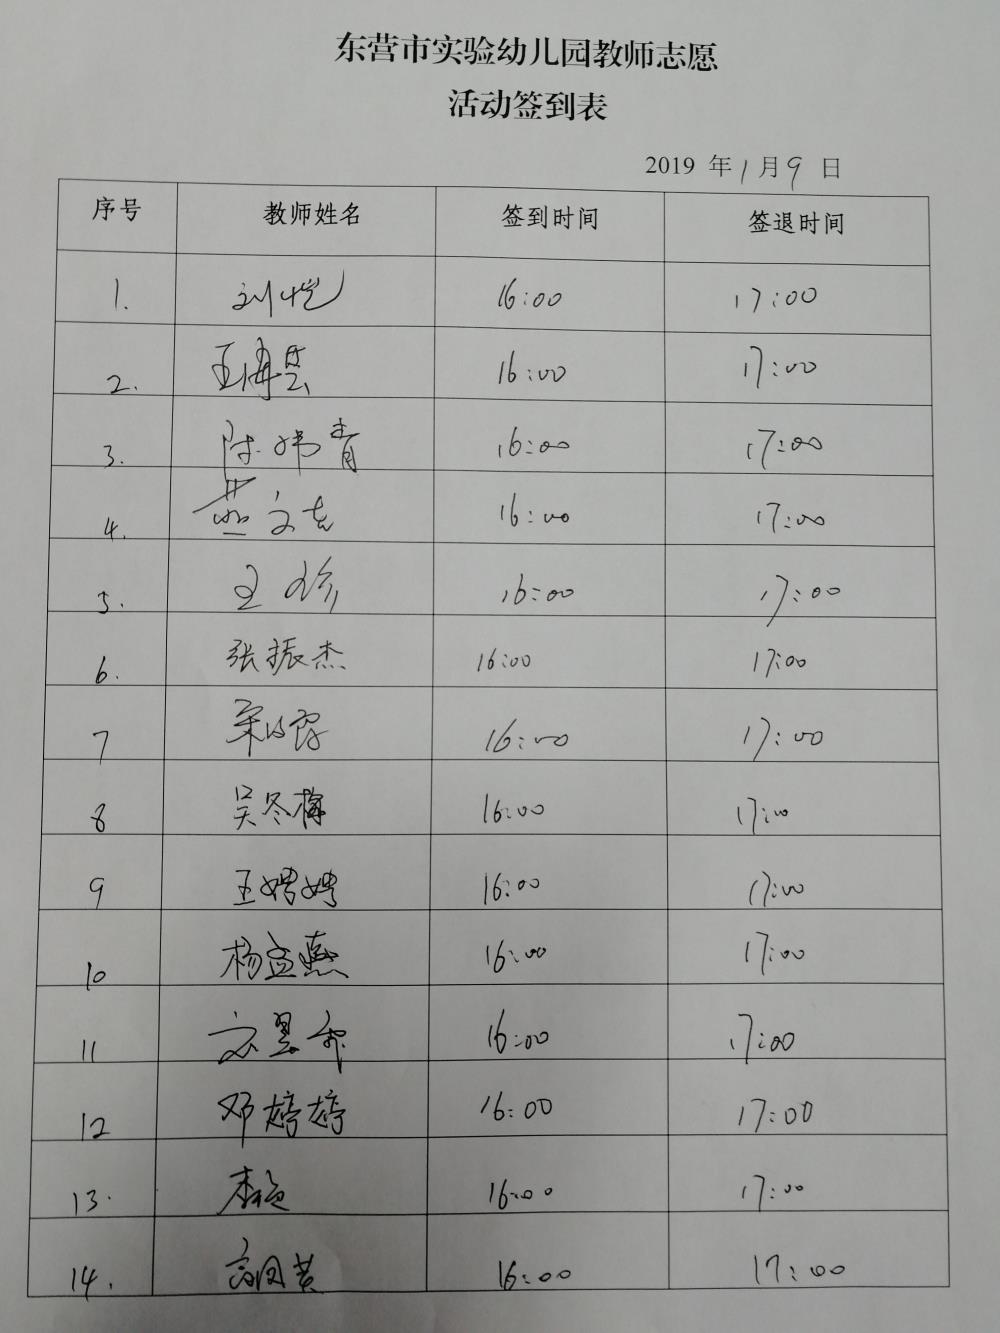 东营市实验幼儿园教师志愿
活动签到表
2019 年 1 月 9 日
序号 教师姓名 签到时间 签退时间
1. 刘恺 16:00 17:00
2. 王海芸 16:00 17:00
3. 陈炜青 16:00 17:00
4. 燕文志 16:00 17:00
5. 王珍 16:00 17:00
6. 张振杰 16:00 17:00
7 16:00 17:00
8 吴冬梅 16:00 17:00
9 王娉娉 16:00 17:00
10 杨孟燕 16:00 17:00
11 16:00 17:00
12 邓婷婷 16:00 17:00
13. 16:00 17:00
14. 16:00 17:00